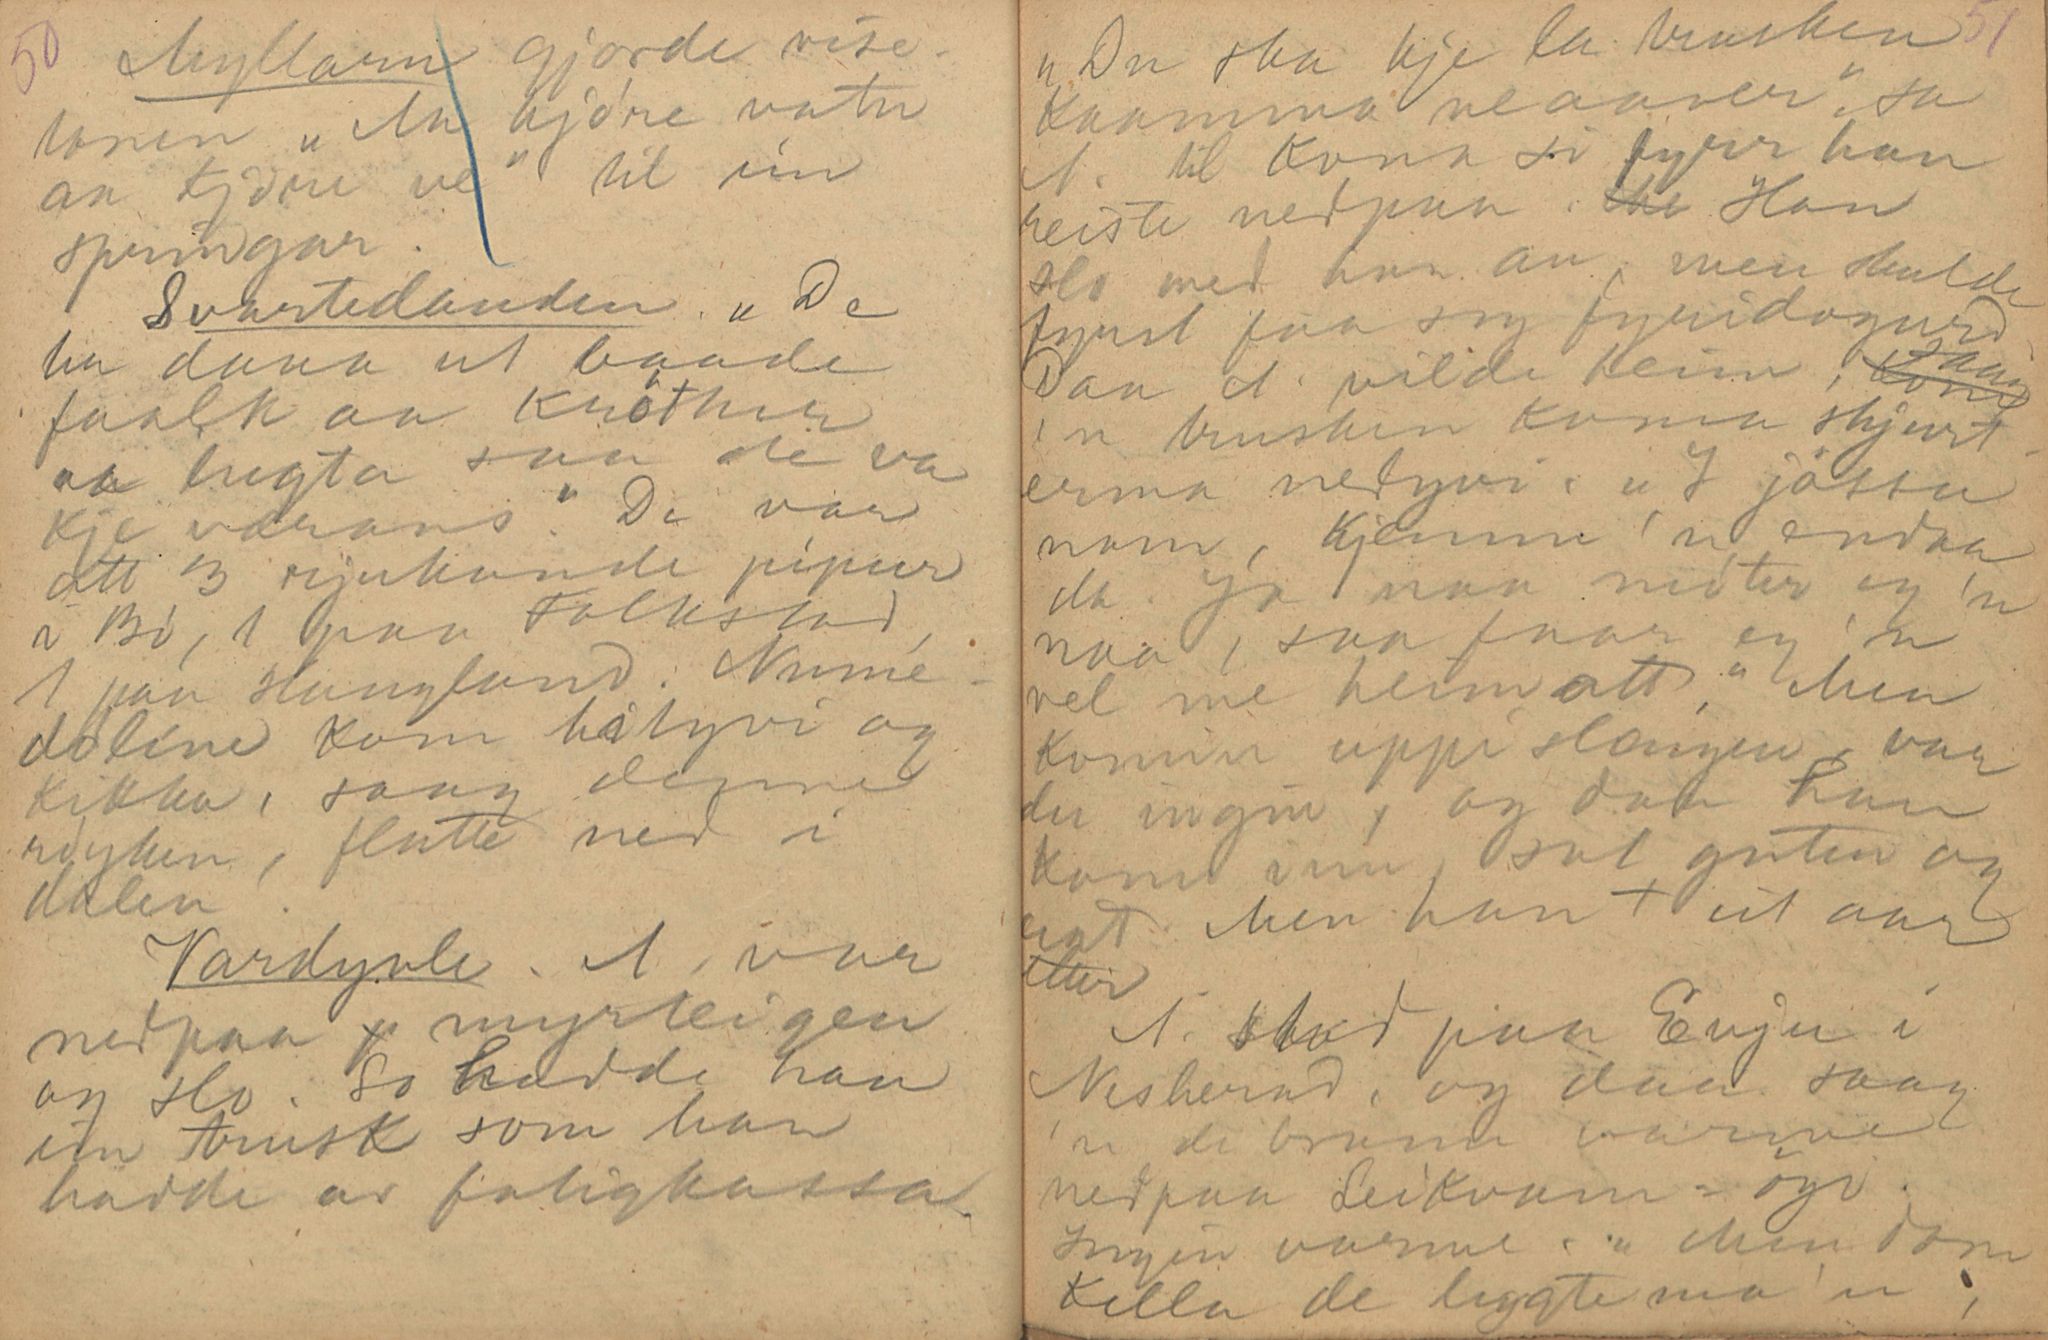 50
Myllarn gjorde vise-
tonen „Aa kjöre vatn
aa kjöre ve" til ein
springar.
Svartedauden. „De
ha daua ut baade
faalk aa kröthur
aa bygta saa de va
kje værans." De var
att 3 rjukande pipur
i Bö, 1 paa Folkstad,
1 paa Haugland. Nume-
döline kom hityvi og
kikka, saag denne
röyken, flutte ned i
dalen.
Vardyvle. A. var
nedpaa myrteigen
og slo. So hadde han
ein brusk som han
hadde av fatigkassa.
51
„Du ska kje la brusken
kaamma neaaver", sa
A. til kona si fyrr han
reiste nedpaa. Han
slo med han au, men skulde
fyrst faa seg fyridogurd.
Daa A. vilde heim, saag
'n brusken koma skjurt-
erma nedyvi. „I jössu
namn, kjemme 'n endaa
da. Ja naa möter eg 'n
naa, saa faar eg 'n
vel me heimatt," Men
komin uppi slengen, var
der ingin, og daa han
kom inn, sat guten og
aat. Men han † eit aar
etter
A. stod paa Evju i
Nesherad, og daa saag
'n de brann varme
nedpaa Leikvam-öyi.
Ingin varme. „Men dom
kella de lygtema'n",